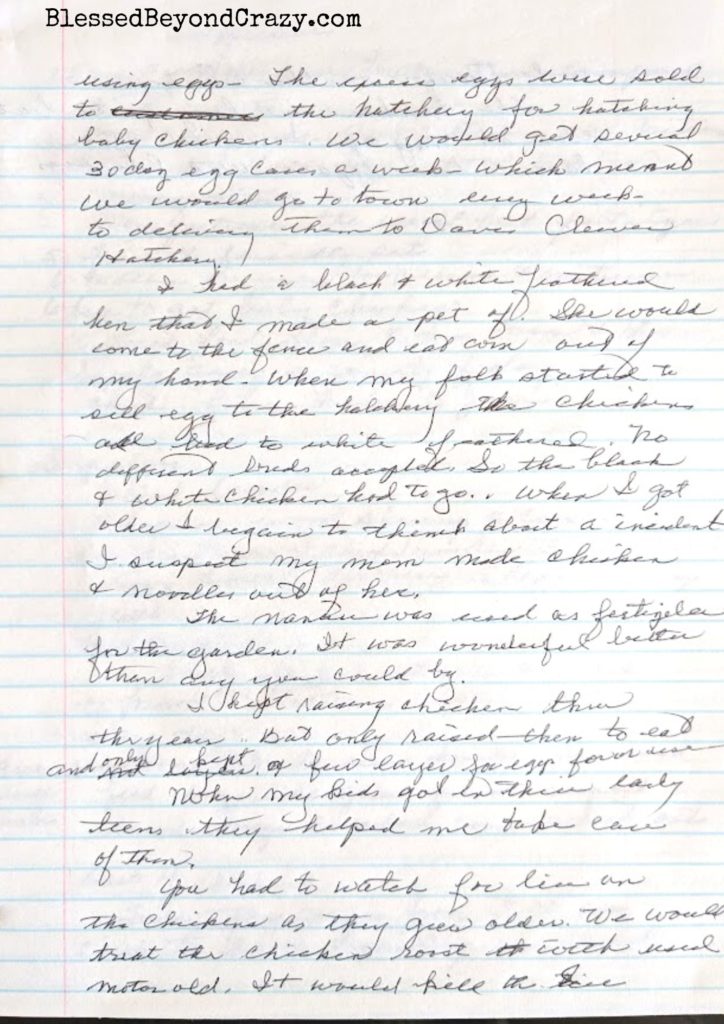 BlessedBeyondCrazy.com
using eggs- The excess eggs were sold
to customers the hatchery for hatching
baby chickens. We would get several
30 doz egg cases a week- which meant
we would go to town every week-
to delivery them to Davis Cleaver
Hatchery!
I had a black & white feathered
hen that I made a pet of. She would
come to the fence and eat corn out of
my hand. When my folk started to
sell egg to the hatchery the chickens
all had to white feathered. No
different breds accepted. So the black
& white chicken had to go.. When I got
older I begain to think about a incident
I suspect my mom made chicken
& noodles out of her.
The manure was used as fertizeler
for the garden. It was wonderful better
than any you could by.
I kept raising chicken thru
the years.. But only raised them to eat
and only kept a few layer for egg for our use
When my kids got in their early
teens they helped me take care
of them.
You had to watch for lice on
the chickens as they grew older. We would
treat the chicken roost with used
motor old. It would kill the lice